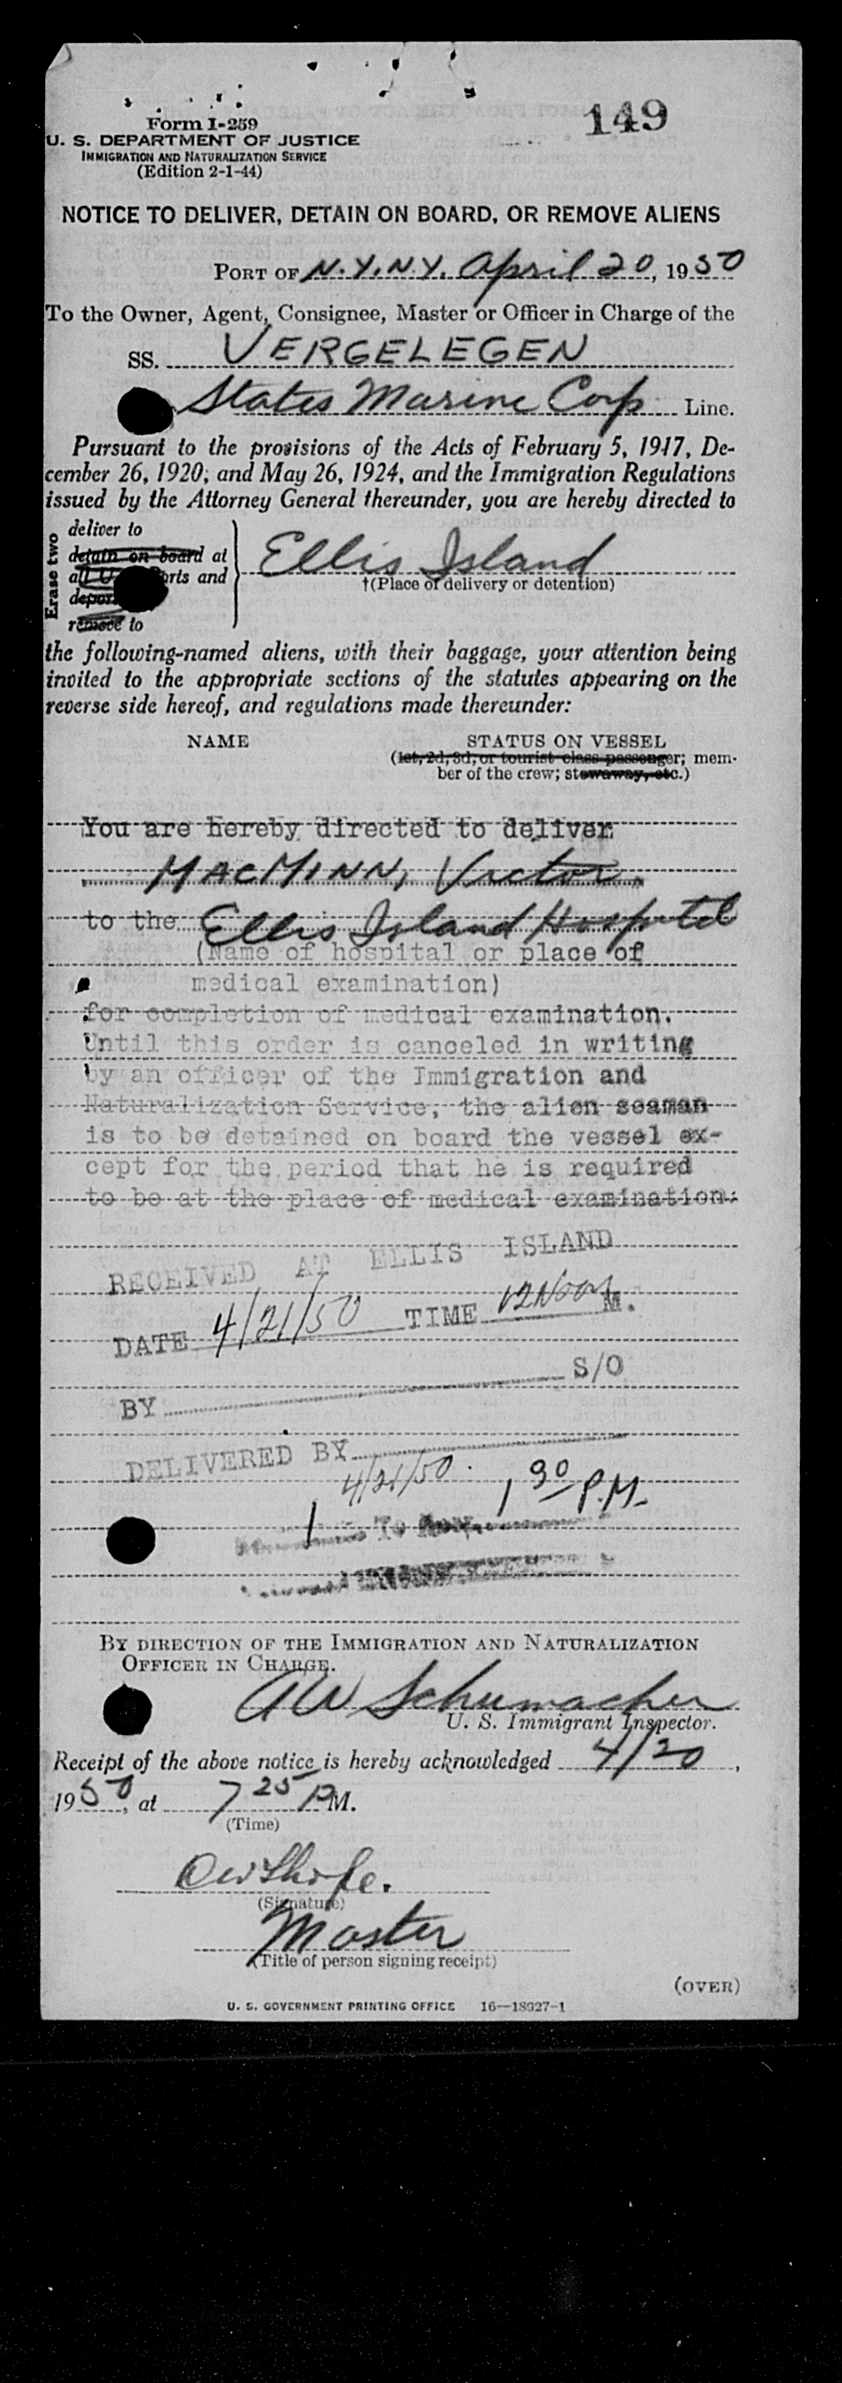 149
Form I-259
U. S. DEPARTMENT OF JUSTICE
IMMIGRATION AND NATURALIZATION SERVICE
(Edition 2-1-44)
NOTICE TO DELIVER, DETAIN ON BOARD, OR REMOVE ALIENS
PORT OF N.Y.N.Y. April 20, 1950
To the Owner, Agent, Consignee, Master or Officer in Charge of the
SS. VERGELEGEN
States Marine Corp Line.
Pursuant to the provisions of the Acts of February 5, 1917, De-
cember 26, 1920; and May 26, 1924, and the Immigration Regulations
issued by the Attorney General thereunder, you are hereby directed to
Erase two
deliver to
detain on board at
all U. ports and
remove to
Ellis Island
†(Place of delivery or detention)
the following-named aliens, with their baggage, your attention being
invited to the appropriate sections of the statutes appearing on the
reverse side hereof, and regulations made thereunder:
NAME STATUS ON VESSEL
(1st, 2d, 3d, or tourist class passenger; mem-
ber of the crew; stowaway, etc.)
You are hereby directed to deliver
MACMINN, Victor.
to the Ellis Island Hospital
(Name of hospital or place of
medical examination)
for completion of medical examination.
Until this order is canceled in writing
by an officer of the Immigration and
Naturalization Service, the alien seaman
is to be detained on board the vessel ex-
cept for the period that he is required
to be at the place of medical examination.
RECEIVED AT ELLIS ISLAND
DATE 4/21/50 TIME 12 Noon M.
BY S/O
DELIVERED BY
4/21/50. 1 30 P.M.
To
BY DIRECTION OF THE IMMIGRATION AND NATURALIZATION
OFFICER IN CHARGE.
A W Schumacher
U. S. Immigrant Inspector.
Receipt of the above notice is hereby acknowledged 4/20,
1950, at 7 25 P.M.
(Time)
(Signature)
Master
(Title of person signing receipt)
(OVER)
U. S. GOVERNMENT PRINTING OFFICE 16—18927-1